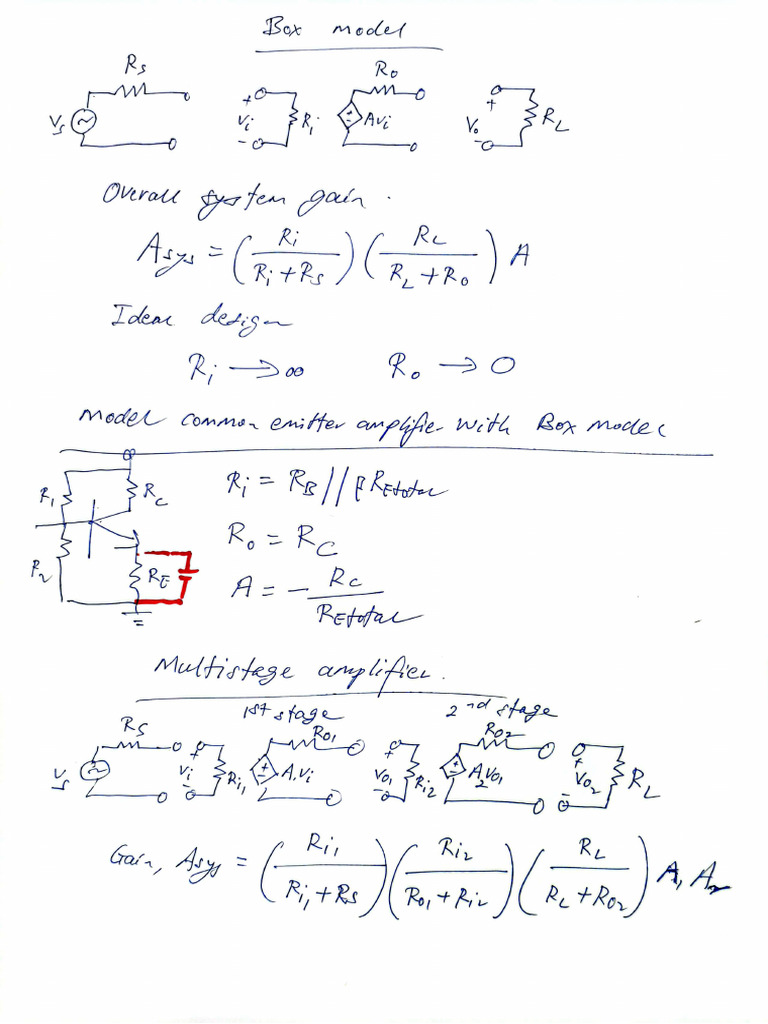 Box model
Rs Ro
Vs + Vi - Ri Avi + Vo - RL
Overall system gain.
Asys = (Ri / Ri + Rs) (RL / RL + Ro) A
Ideal design
Ri → ∞ Ro → 0
Model common emitter amplifier with Box model
R1 RC Ri = RB // β REtotal
R2 RE Ro = RC
A = - RC / REtotal
Multistage amplifier.
1st stage 2nd stage
Rs Ro1 Ro2
Vs + Vi - Ri1 A1Vi + Vo1 - Ri2 A2Vo1 + Vo2 - RL
Gain, Asys = (Ri1 / Ri1 + Rs) (Ri2 / Ro1 + Ri2) (RL / RL + Ro2) A1 A2